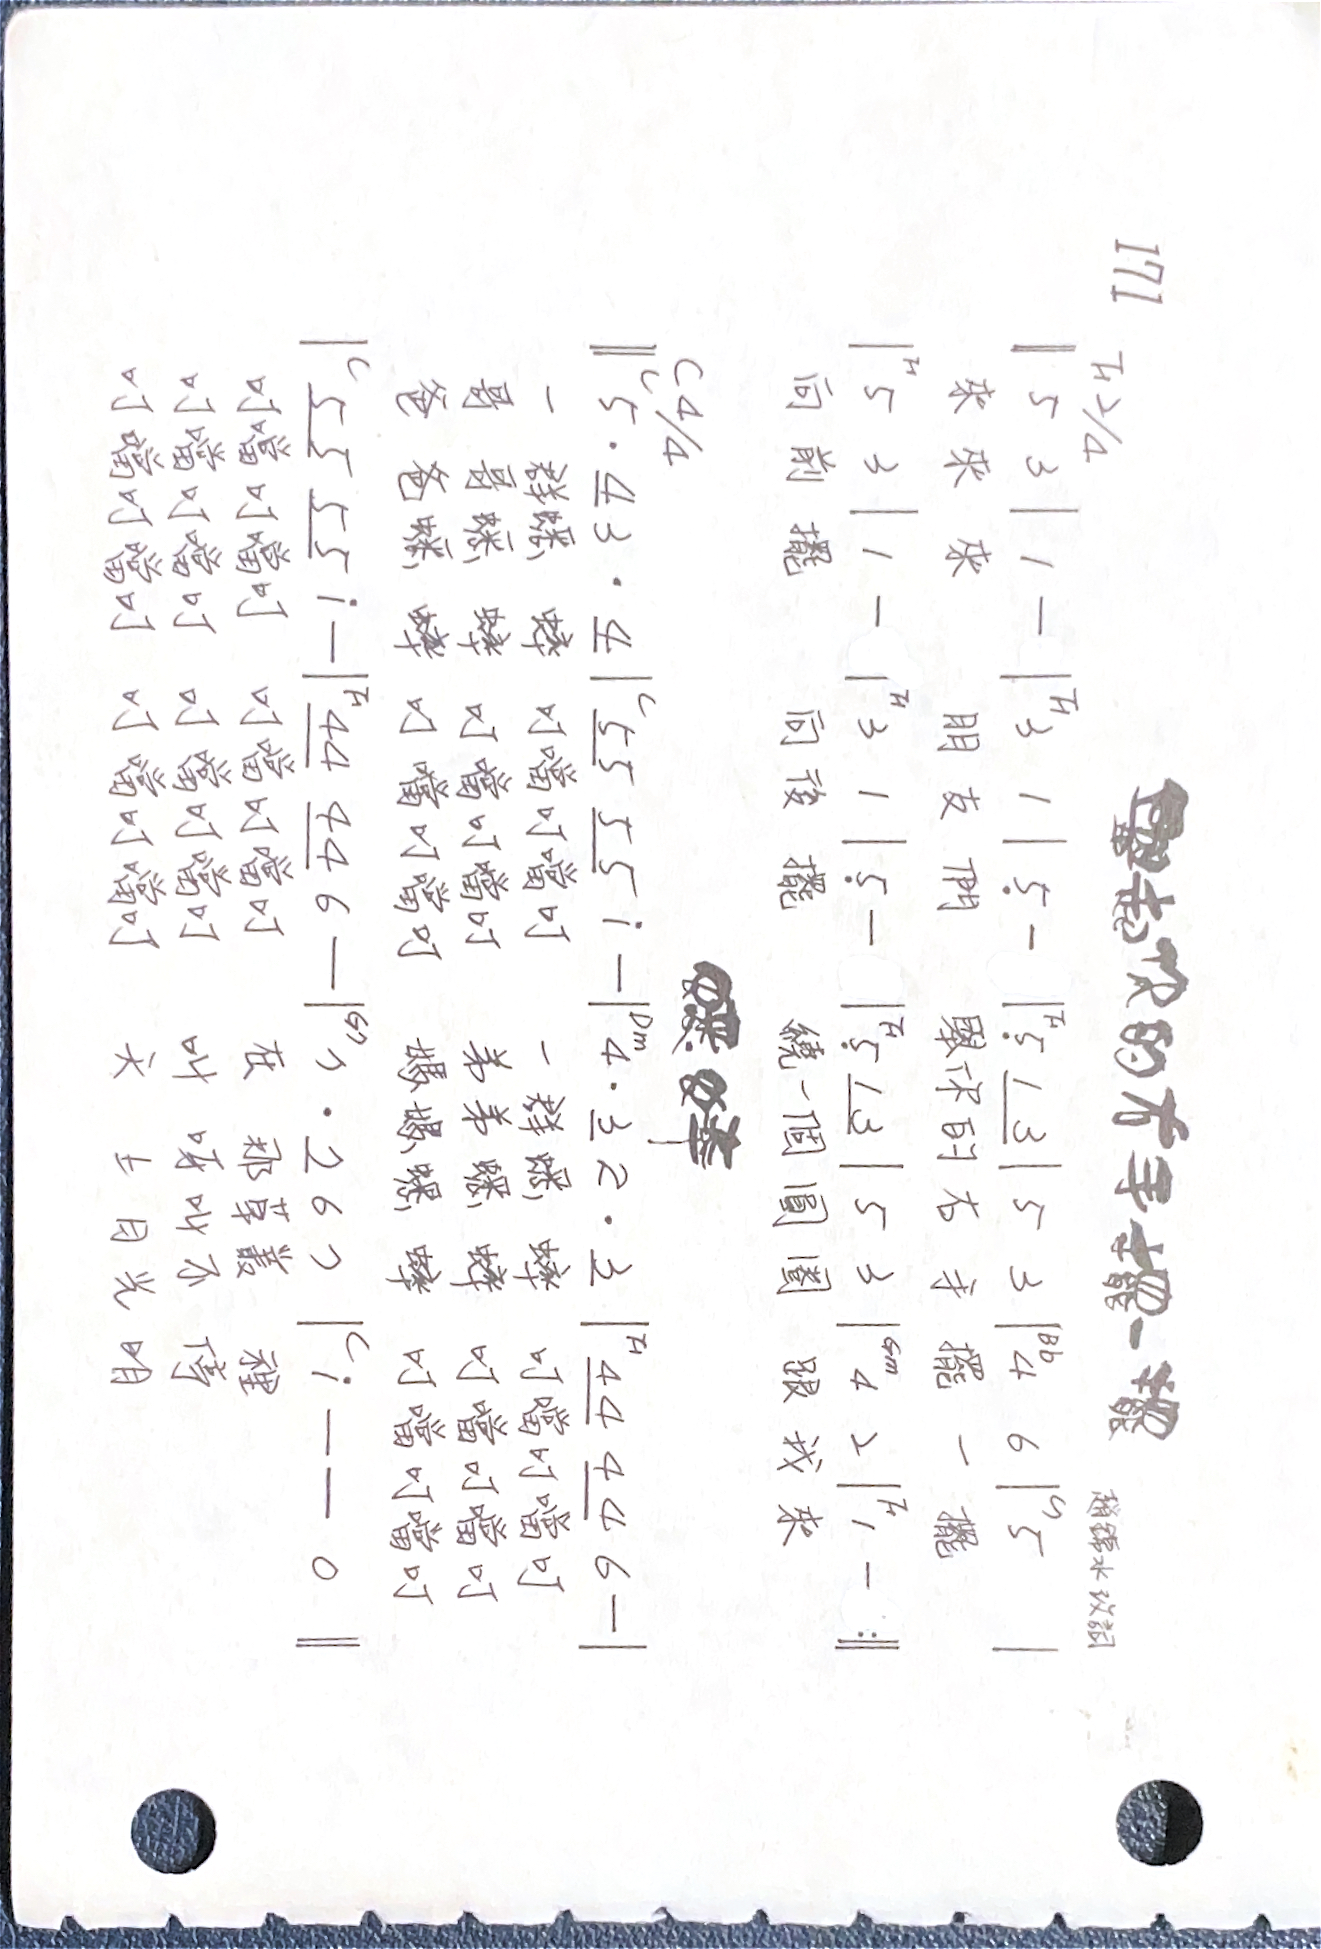 171
舉起你的右手擺一擺
F 2/4
趙錦水改詞
‖ 5 3 | 1 — | F 3 1 | 5̣ — | F 5̣ 1 3 | 5 3 | Bb 4 6 | C 5 |
來 來 來 朋 友 們 舉你的右 手 擺 一 擺
| F 5 3 | 1 — | F 3 1 | 5̣ — | F 5̣ 1 3 | 5 3 | Gm 4 2 | F 1 — :‖
向 前 擺 向 後 擺 繞一個圓 圈 跟 我 來
蟋蟀
C 4/4
‖ C 5 · 4 3 · 4 | C 5 5 5 5 i — | Dm 4 · 3 2 · 3 | F 4 4 4 4 6 — |
一 群蟋 蟀 叮噹叮噹叮 一 群 蟋 蟀 叮噹叮噹叮
哥 哥蟋 蟀 叮噹叮噹叮 弟 弟 蟋 蟀 叮噹叮噹叮
爸 爸蟋 蟀 叮噹叮噹叮 媽 媽 蟋 蟀 叮噹叮噹叮
| C 5 5 5 5 i — | F 4 4 4 4 6 — | G7 7 · 7 6 7 | C i — — 0 ‖
叮噹叮噹叮 叮噹叮噹叮 在 那草叢 裡
叮噹叮噹叮 叮噹叮噹叮 叫 呀叫不 停
叮噹叮噹叮 叮噹叮噹叮 天 上月光 明